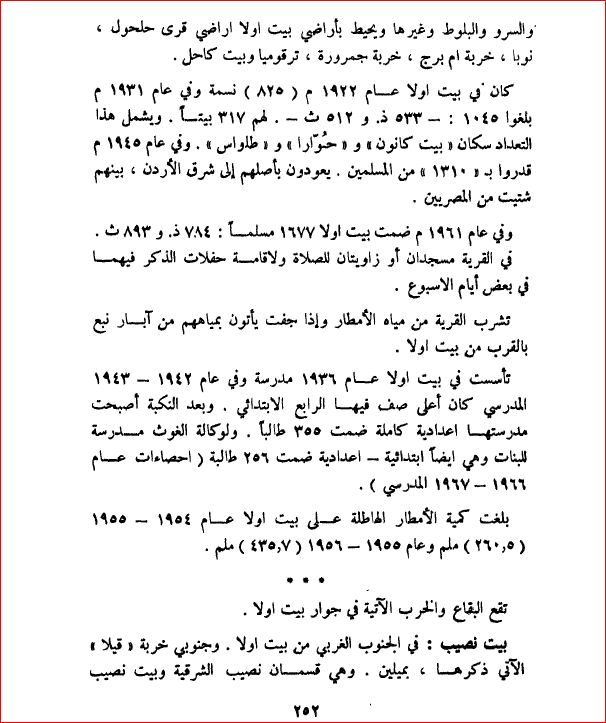 والسرو والبلوط وغيرها ويحيط بأراضي بيت اولا اراضي قرى حلحول ،
نوبا ، خربة ام برج ، خربة جمرورة ، ترقوميا وبيت كاحل .
كان في بيت اولا عـــام ١٩٢٢ م ( ٨٢٥ ) نسمة وفي عام ١٩٣١ م
بلغوا ١٠٤٥ : – ٥٣٣ ذ. و ٥١٢ ث – . لهم ٣١٧ بيتــاً . ويشمل هذا
التعداد سكان « بيت كانون » و « حُوّارا » و « طلواس » . وفي عام ١٩٤٥ م
قدروا بـ « ١٣١٠ » من المسلمين . يعودون بأصلهم إلى شرق الأردن ، بينهم
شتيت من المصريين .
وفي عام ١٩٦١ م ضمت بيت اولا ١٦٧٧ مسلمــاً : ٧٨٤ ذ. و ٨٩٣ ث .
في القرية مسجدان أو زاويتان للصلاة ولاقامــة حفلات الذكر فيهمــا
في بعض أيام الاسبوع .
تشرب القرية من مياه الأمطار وإذا جفت يأتون بمياههم من آبــار نبع
بالقرب من بيت اولا .
تأسست في بيت اولا عـــام ١٩٣٦ مدرسة وفي عام ١٩٤٢ – ١٩٤٣
المدرسي كان أعلى صف فيهــا الرابع الابتدائي . وبعد النكبة أصبحت
مدرستهــا اعدادية كاملة ضمت ٣٥٥ طالباً . ولوكالة الغوث مــدرسة
للبنات وهي ايضاً ابتدائية – اعدادية ضمت ٢٥٦ طالبة ( احصاءات عــام
١٩٦٦ – ١٩٦٧ المدرسي ) .
بلغت كمية الأمطار الهاطلة عــلى بيت اولا عــام ١٩٥٤ – ١٩٥٥
( ٢٦٠,٥ ) ملم وعام ١٩٥٥ – ١٩٥٦ ( ٤٣٥,٧ ) ملم .
* * *
تقع البقاع والخرب الآتية في جوار بيت اولا .
بيت نصيب : في الجنوب الغربي من بيت اولا . وجنوبي خربة « قيلا »
الآتي ذكرهــا ، بميلين . وهي قسمــان نصيب الشرقية وبيت نصيب
٢٥٢